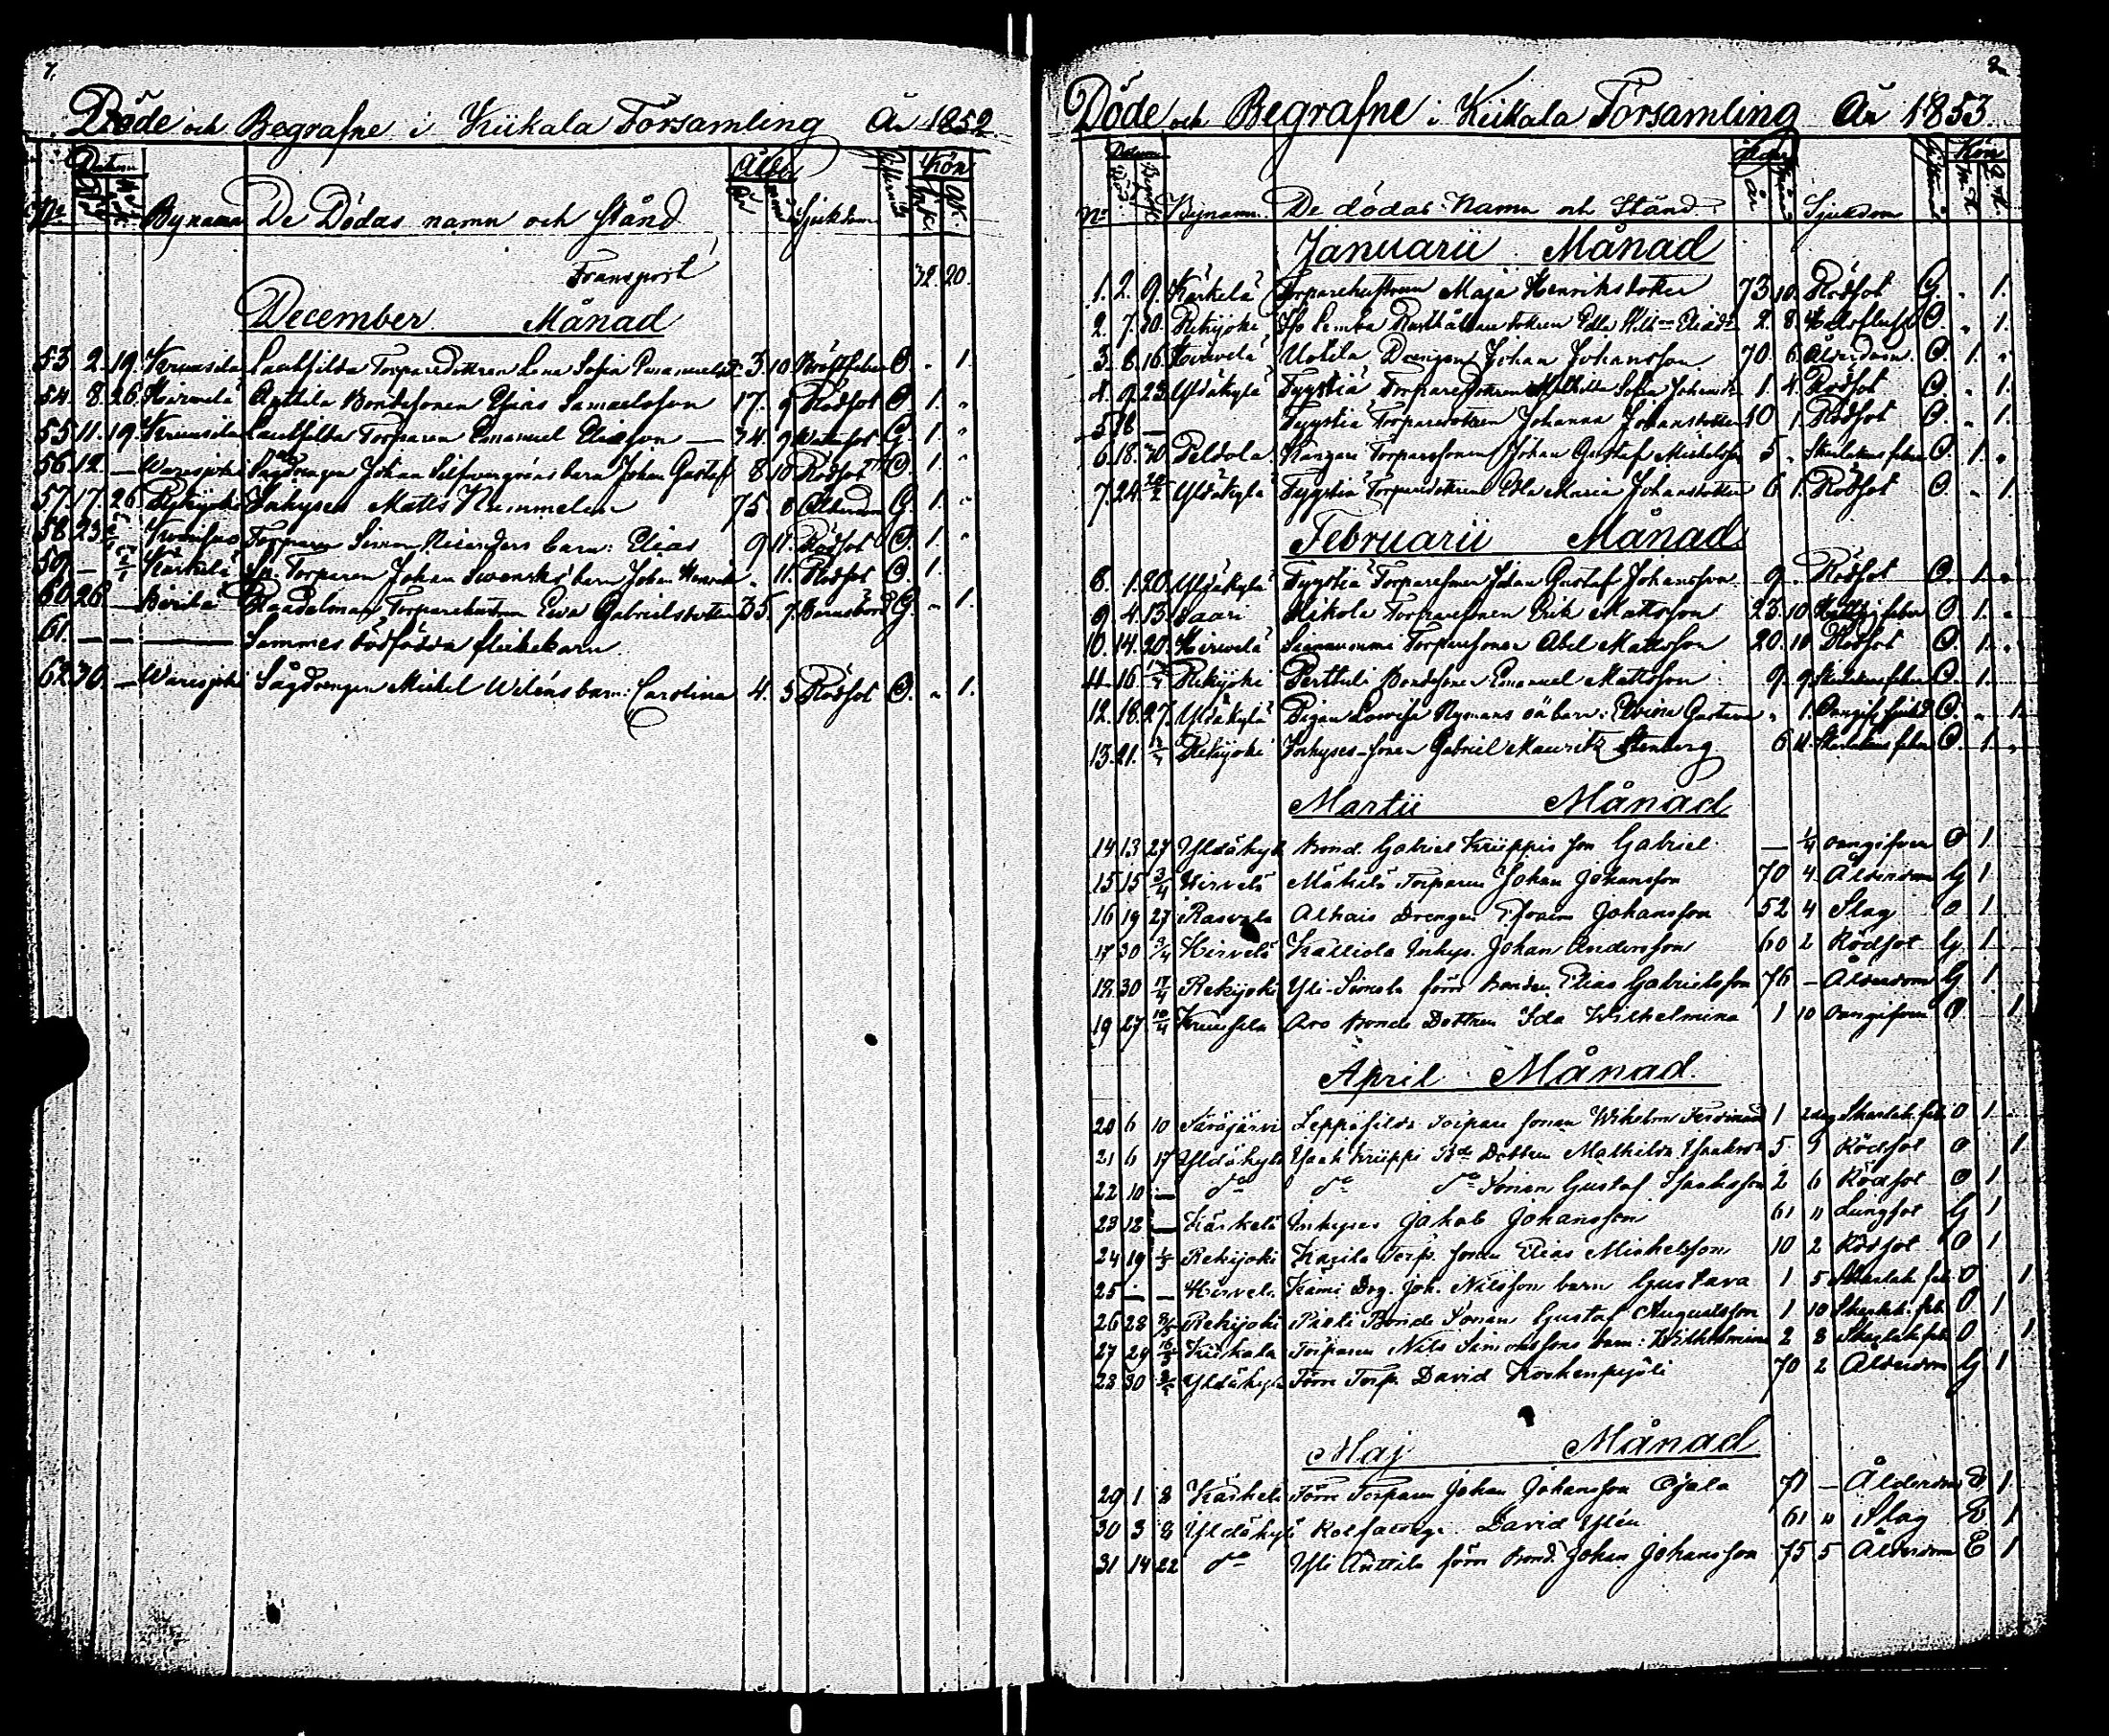 7.
Döde och Begrafne i Kiikala Församling År 1852.
Datum Ålder Kön
No Bynamn De Dödas namn och stånd År Sjukdom
Transport 32. 20.
December Månad
53. 2. 19. Krumsila Torparedottren Lena Sofia 3. 10. O. „ 1.
54. 8. 26. Hirvelä Anttila Bondesonen Elias Samuelsson 17. 9 Rödsot O. 1. „
55. 11. 19. Krumsila Torparen Emanuel Eliasson — 74. 9 Wattusot G. 1. „
56. 12. — Warisjoki Sågdrengen Johan barn Johan Gustaf 8. 10 Rödsot O. 1. „
57. 17. 26 Rekijoki Inhysen Matts Nummelin 75. 8 Ålderdom G. 1. „
58. 23. Torparen Simon barn: Elias 9. 11. Rödsot O. 1. „
59. — Kärkelä Torparen Johan barn Johan Henrik „ 11. Rödsot O. 1.
60. 26. — Torparehustrun Ewa Gabrielsdotter 35. 7. Barnsbörd G. „ 1.
61. — — — Sammes dödfödda flickebarn
62. 30. — Warisjoki Sågdrengen Mickel Weléns barn: Carolina 4. 3 Rödsot O. „ 1.
2.
Döde och Begrafne i Kiikala Församling År 1853.
Datum Ålder Kön
No Bynamn. De dödas Namn och Stånd. År Sjukdom
Januarii Månad
1. 2. 9. Kärkelä Torparehustrun Maja Henriksdotter 73. 10. Rödsot G. „ 1.
2. 7. 30. Rekijoki Iso Rusthållare dottren Edla 2. 8. O. „ 1.
3. 8. 16. Hirvelä Uotila Drengen Johan Johansson 70. 6. Ålderdom O. 1. „
4. 9. 23. Yldäkylä Tyystiä Torparedottren Mathilda Sofia 1. 4. Rödsot O. „ 1.
5. 16 — Tyystiä Torparedottren Johanna Johansdotter 10 1. Rödsot O. „ 1.
6. 18. 30 Peldola Kangars Torparesonen Johan Gustaf Mickelsson 5 „ Skarlakans feber O. 1. „
7. 24. Yldäkylä Tyystiä Torparedottren Edla Maria Johansdotter 6 1. Rödsot O. „ 1.
Februarii Månad
8. 1. 20. Yldäkylä Tyystiä Torparesonen Johan Gustaf Johansson 9 „ Rödsot O. 1. „
9. 4. 13. Saari Mikola Torparesonen Erik Mattsson 23. 10. feber O. 1. „
10. 14. 20. Hirvelä Torparesonen Abel Mattsson 20. 10. Rödsot O. 1. „
11. 16. Rekijoki Perttuli Bondesonen Emanuel Mattsson 9. 9. Skarlakans feber O. 1.
12. 18. 27. Yldäkylä Pigan Lowisa Nymans oä barn: Gustava „ 1. O. „ 1.
13. 21. Rekijoki Inhyses-sonen Gabriel Mauritz Stenberg 6. 11. Skarlakans feber O. 1. „
Martii Månad
14 13 27 Yldäkyla Bond. Gabriel Kriippis son Gabriel — 1/4 oangifven O 1
15 15 3/4 Hirvelä Mäkilä Torparen Johan Johansson 70 4 Ålderdom G 1
16 19 27 Rasvala Alhais drengen Efraim Johansson 52 4 Slag O 1
17 30 3/4 Hirvelä Kalliola Inhys. Johan Andersson 60 2 Rödsot G 1
18 30 17/4 Rekijoki Yli-Simola förre Bonden Elias Gabrielsson 76 — Ålderdom G 1
19 27 10/4 Krumsila Aro Bonde Dottren Ida Wilhelmina 1 10 oangifven O 1
April Månad.
20 6 10 Särajärvi Leppäsildä Torpare sonen Wilhelm Ferdinand 1 2 dag Skarlak. feb. O 1
21 6 17 Yldäkylä Isaak Kriippi Bde Dottren Mathilda Isaaksdr 5 9 Rödsot O 1
22 10 — do do do Sonen Gustaf Isaaksson 2 6 Rödsot O 1
23 12 — Kärkelä Inhyses Jakob Johansson 61 11 Lungsot G 1
24 19 1/5 Rekijoki Torp. sonen Elias Mickelsson 10 2 Rödsot O 1
25 — — Hirvelä Kämi Drg. Joh. Nilsson barn Gustava 1 5 Skarlak. feb. O 1
26 28 Rekijoki Bonde Sonen Gustaf Augustsson 1 10 Skarlak. feb. O 1
27 29 Kiikala Torparen Nils Simonssons barn: Wilhelmina 2 8 Skarlak. feb. O 1
28 30 Yldäkylä Förre Torp. David Koskenpyöli 70 2 Ålderdom G 1
Maj Månad
29 1 8 Kärkelä Förre Torparen Johan Johansson Ojala 71 — Ålderdom E 1
30 3 8 Yldäkylä David Ylén 61 11 Slag E 1
31 14 22 do Yli Anttila förre Bond. Johan Johansson 75 5 Ålderdom E 1